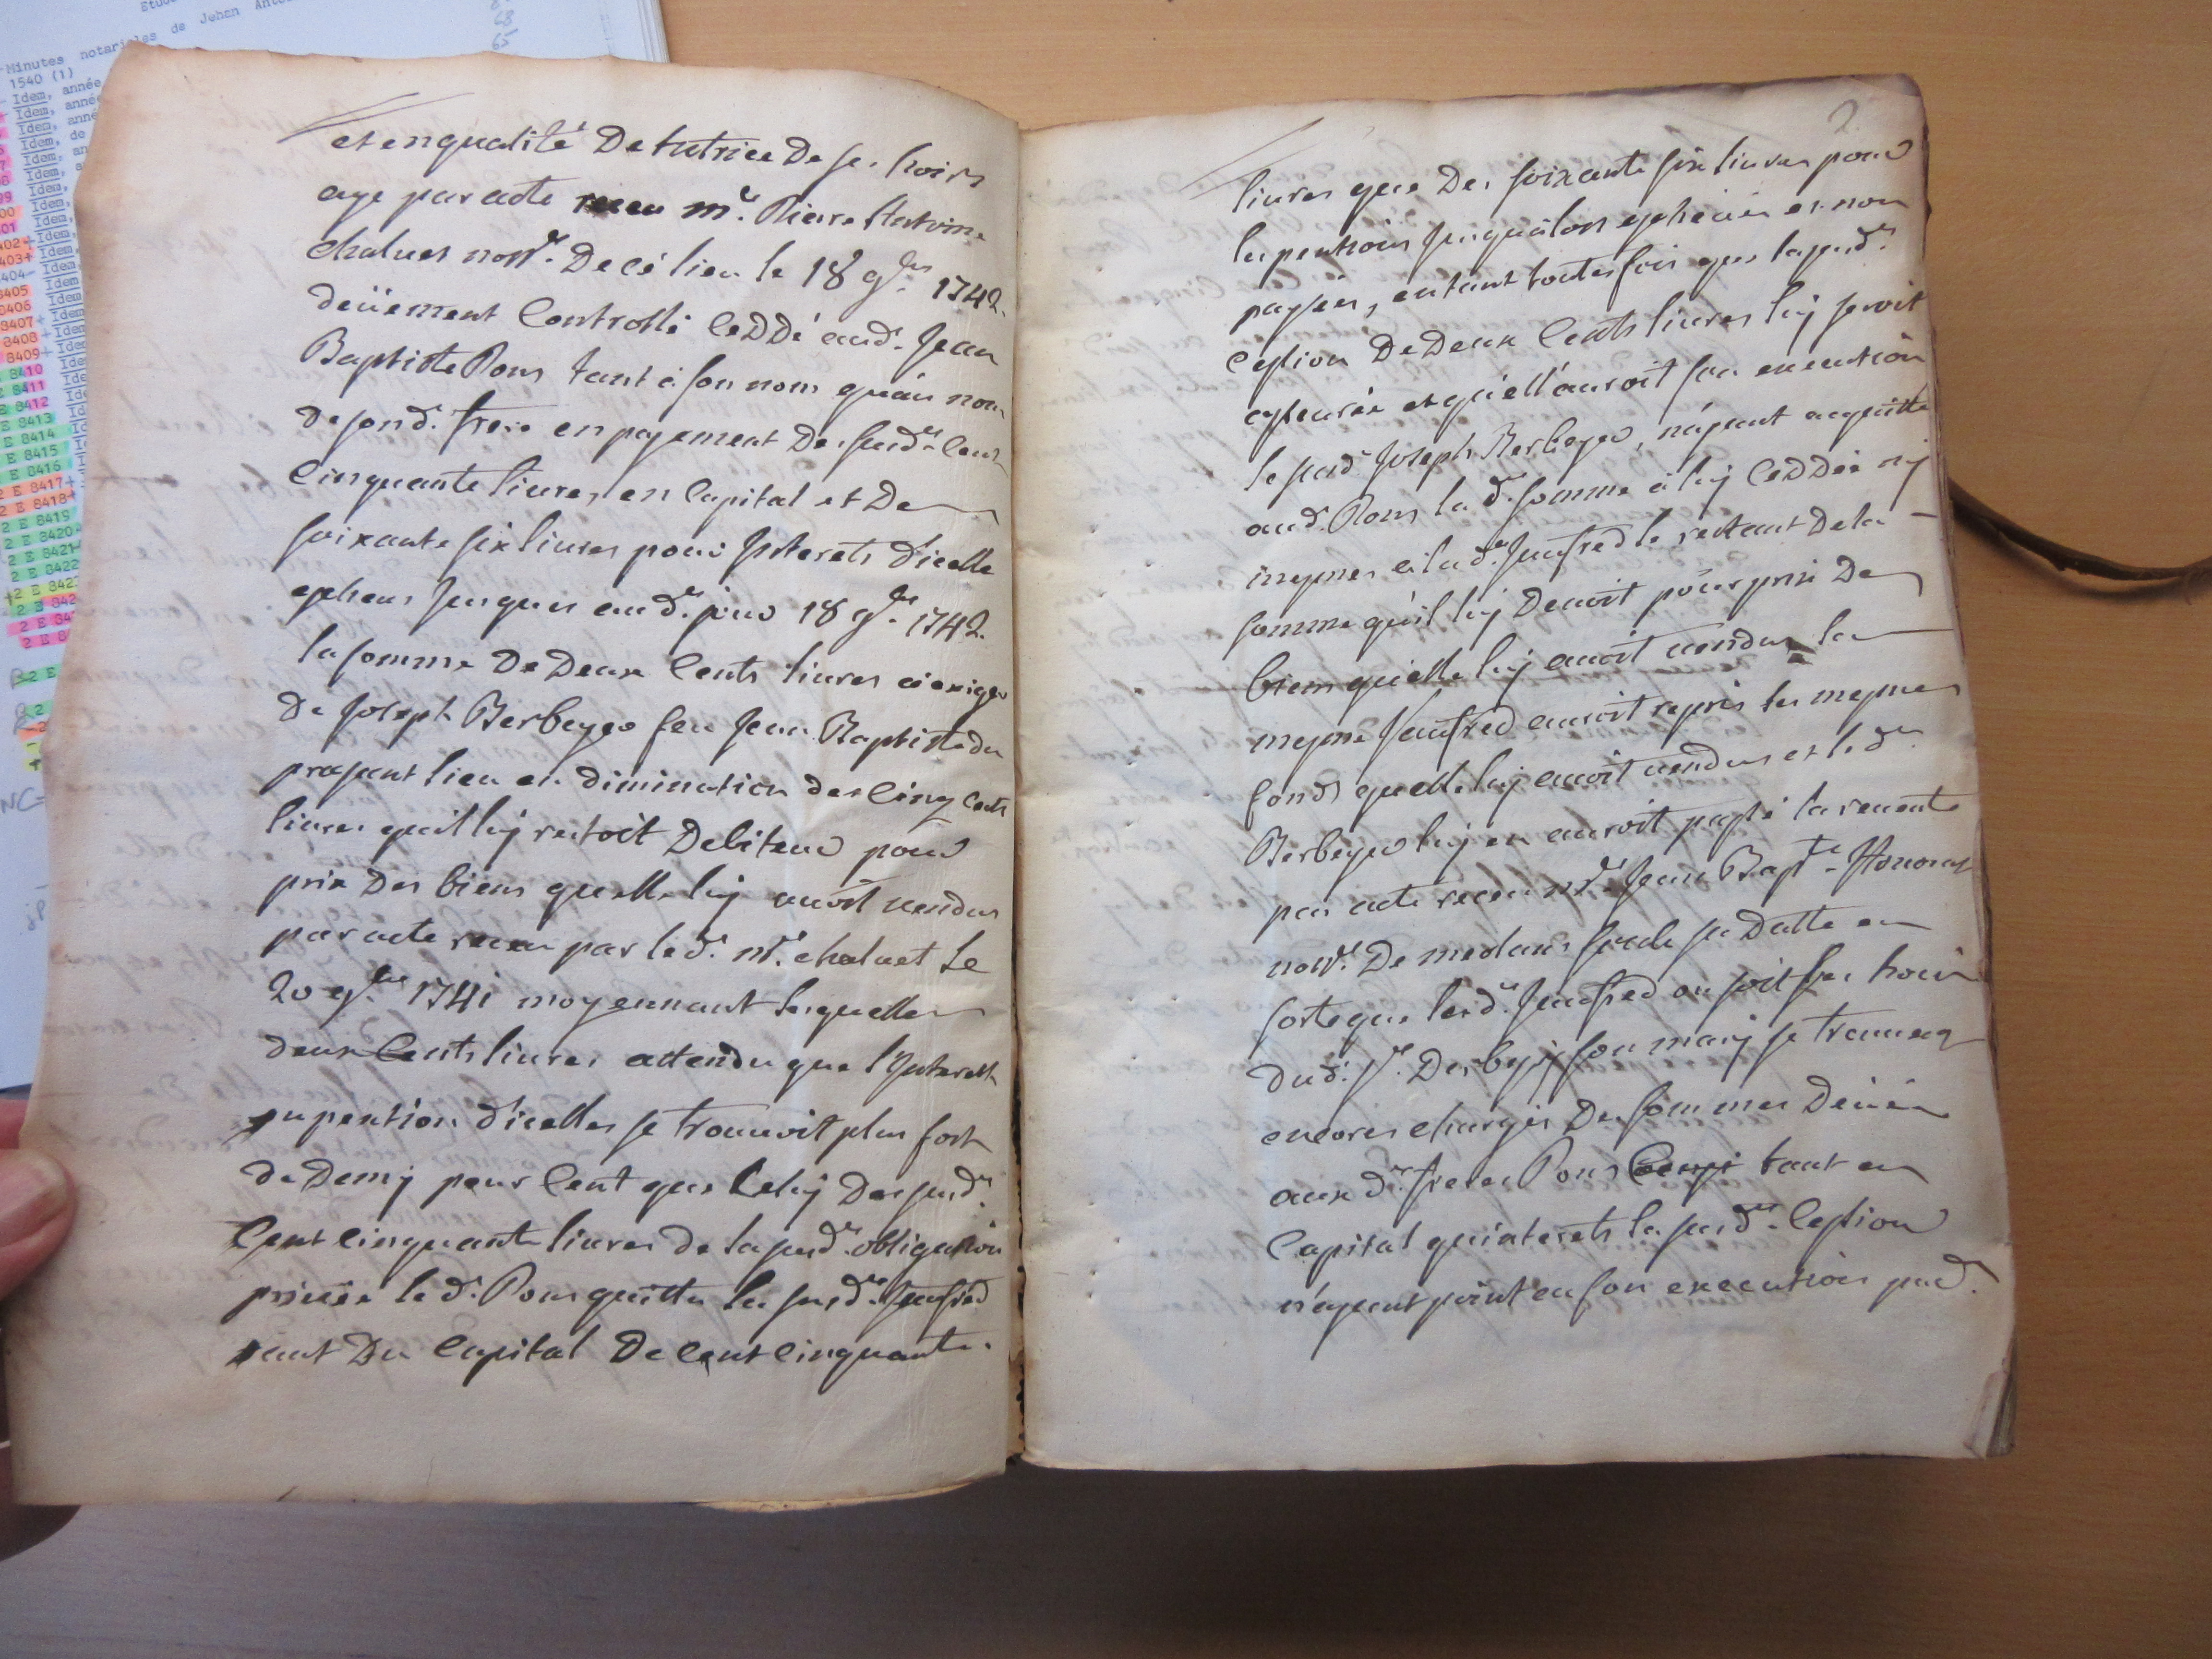 Minutes notariales de Jehan Anto
1540 (1)
Idem, année
Idem, année
Idem, de
8405 Idem
8406 Idem
8407+ Idem
8408+ Idem
8409+ Idem
E 8410
E 8411
E 8412
E 8413
E 8414
E 8415
E 8416
2 E 8417+
2 E 8418+
2 E 8419
2 E 8420
2 E 8421
2 E 8422
et en qualité De tutrice De ses hoirs
aye par acte receu me. Pierre Antoine
chaluet nore. De ce lieu le 18 9bre 1742.
deüement Controllé CeDDé aud. Jean
Baptiste Pons tant à son nom qu'au nom
de sond. frere en payement Des susd.es Cent
Cinquante livres en Capital et De
soixante six livres pour Jnterets d'icelle
escheus jusques aud. jour 18 9bre 1742.
la somme De Deux Cents livres à exiger
De Joseph Berbeyer feu Jean Baptiste du
present lieu en diminution des Cinq Cents
livres qu'il luy restoit Debiteur pour
prix Des biens quelle luy avoit vendus
par acte receu par led. me. chaluet Le
20 9bre 1741 moyennant lesquelles
deux Cents livres attendu que l'Jnterest
ou pention d'icelles se trouvoit plus fort
de Demy pour Cent que Celuy Des susd.es
Cent cinquante livres de la susd.e obligation
privée led. Pons quitta la susd.e Jaufred
tant Du Capital De Cent Cinquante
2
livres que Des soixante six livres pour
les pentions jusqu'alors escheües et non
payées, entant toutesfois que la susd.e
Cession De Deux Cents livres luy seroit
asseurée et qu'ell'auroit son execution
le susd. Joseph Berbeyer, n'ayant acquitté
aud. Pons la d.e somme à luy CeDDée ny
mesmes à la d.e Jaufred le restant De la
somme qu'il luy Devoit pour prix De
biens quelle luy avoit vendus la
mesme Jaufred auroit repris les mesmes
fonds quelle luy avoit vendus et led.
Berbeyer luy en auroit passé la revente
par acte receu me. Jean Bapte. Honorat
nore. De medans soubs sa Datte en
sorte que lad.e Jaufred ou soit les hoirs
dud. Sr. Derbezy son mary se trouvent
encores chargés Des sommes Deües
aux d.s freres Pons tant en
Capital qu'interets la susd.e Cession
n'ayant point eu son execution